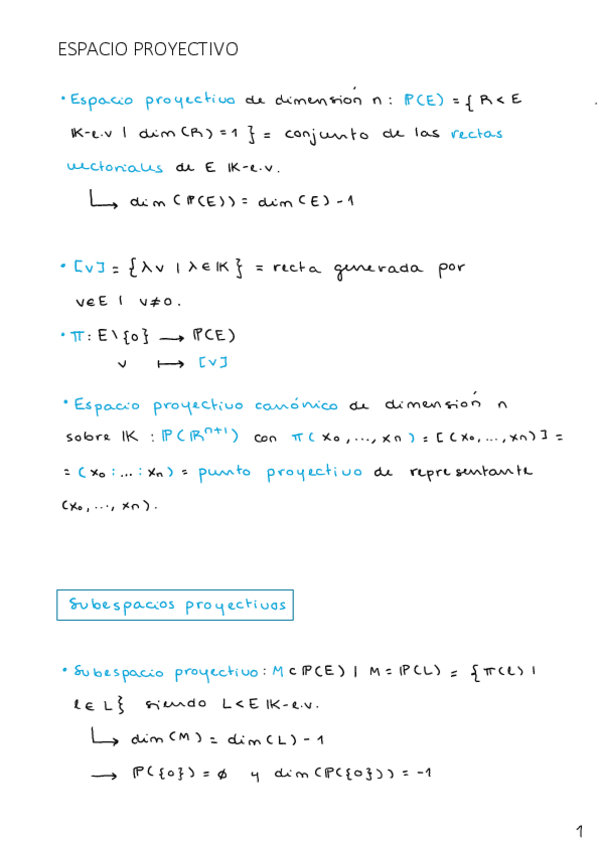 ESPACIO PROYECTIVO
• Espacio proyectivo de dimensión n: ℙ(E) = { R < E
𝕂-e.v | dim(R) = 1 } = conjunto de las rectas
vectoriales de E 𝕂-e.v.
↳ dim(ℙ(E)) = dim(E) - 1
• [v] = { λv | λ ∈ 𝕂 } = recta generada por
v∈E | v≠0.
• π: E\{0} ⟶ ℙ(E)
v ⟼ [v]
• Espacio proyectivo canónico de dimensión n
sobre 𝕂 : ℙ(ℝⁿ⁺¹) con π(x₀, ..., xₙ) = [(x₀, ..., xₙ)] =
= (x₀ : ... : xₙ) = punto proyectivo de representante
(x₀, ..., xₙ).
Subespacios proyectivos
• Subespacio proyectivo: M ⊂ ℙ(E) | M = ℙ(L) = { π(l) |
l ∈ L } siendo L < E 𝕂-e.v.
↳ dim(M) = dim(L) - 1
⟶ ℙ({0}) = ∅ y dim(ℙ({0})) = -1
1